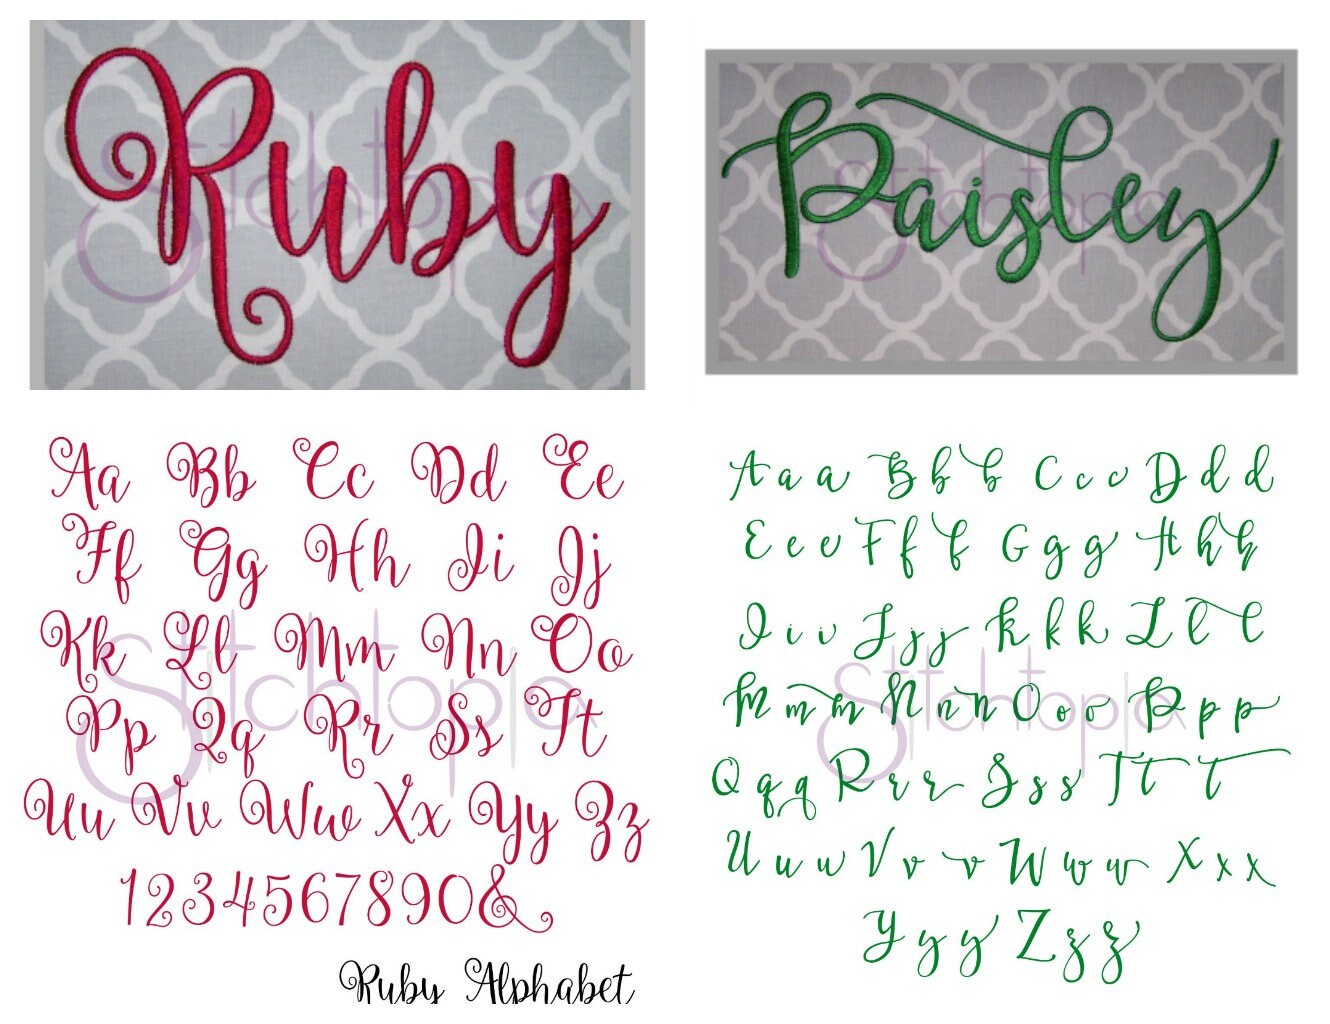 Ruby
Stitchtopia
Aa Bb Cc Dd Ee
Ff Gg Hh Ii Jj
Kk Ll Mm Nn Oo
Pp Qq Rr Ss Tt
Uu Vv Ww Xx Yy Zz
1234567890&
Stitchtopia
Ruby Alphabet
Paisley
Stitchtopia
A a a B b b C c c D d d
E e e F f f G g g H h h
I i i J j j K k k L l l
M m m N n n O o o P p p
Q q q R r r S s s T t t
U u u V v v W w w X x x
Y y y Z z z
Stitchtopia